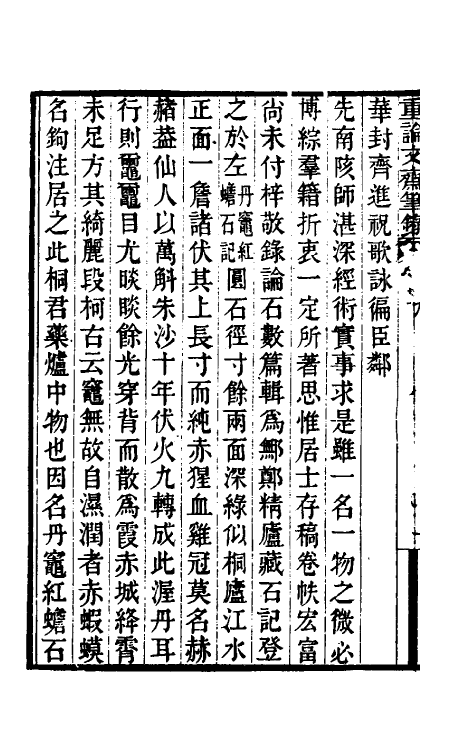 重論文齋筆錄
華封齊進祝歌詠徧臣鄰
先南陔師湛深經術實事求是雖一名一物之微必
博綜羣籍折衷一定所著思惟居士存稿卷帙宏富
尚未付梓敬錄論石數篇輯為鄦鄭精廬藏石記登
之於左丹竈紅蟾石記圓石徑寸餘兩面深綠似桐廬江水
正面一詹諸伏其上長寸而純赤猩血雞冠莫名赫
赭葢仙人以萬斛朱沙十年伏火九轉成此渥丹耳
行則鼀鼀目尤晱晱餘光穿背而散為霞赤城絳霄
未足方其綺麗段柯右云竈無故自濕潤者赤蝦蟆
名鉤注居之此桐君藥爐中物也因名丹竈紅蟾石